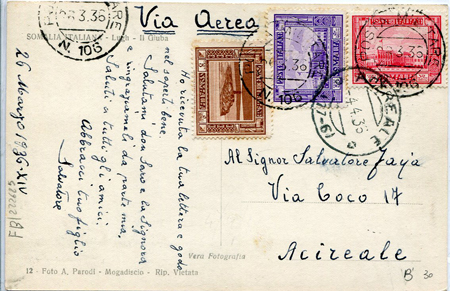 Via Aerea
SOMALIA ITALIANA - Lugh - Il Giuba
26 Marzo 1936-XIV
Ho ricevuta la tua lettera e godo
nel saperti bene.
Salutami don Saro e la Signora
e ringraziamoli da parte mia.
Saluti a tutti gli amici.
Abbracci tuo figlio
Salvatore
Al Signor Salvatore Jaya
Via Coco 17
Acireale
Vera Fotografia
12 - Foto A. Parodi - Mogadiscio - Rip. Vietata
POSTE ITALIANE
SOMALIA
POSTE ITALIANE
POSTE ITALIANE
3.36
N. 106
3.36
N. 106
3.36
106
4.4.36
B 30